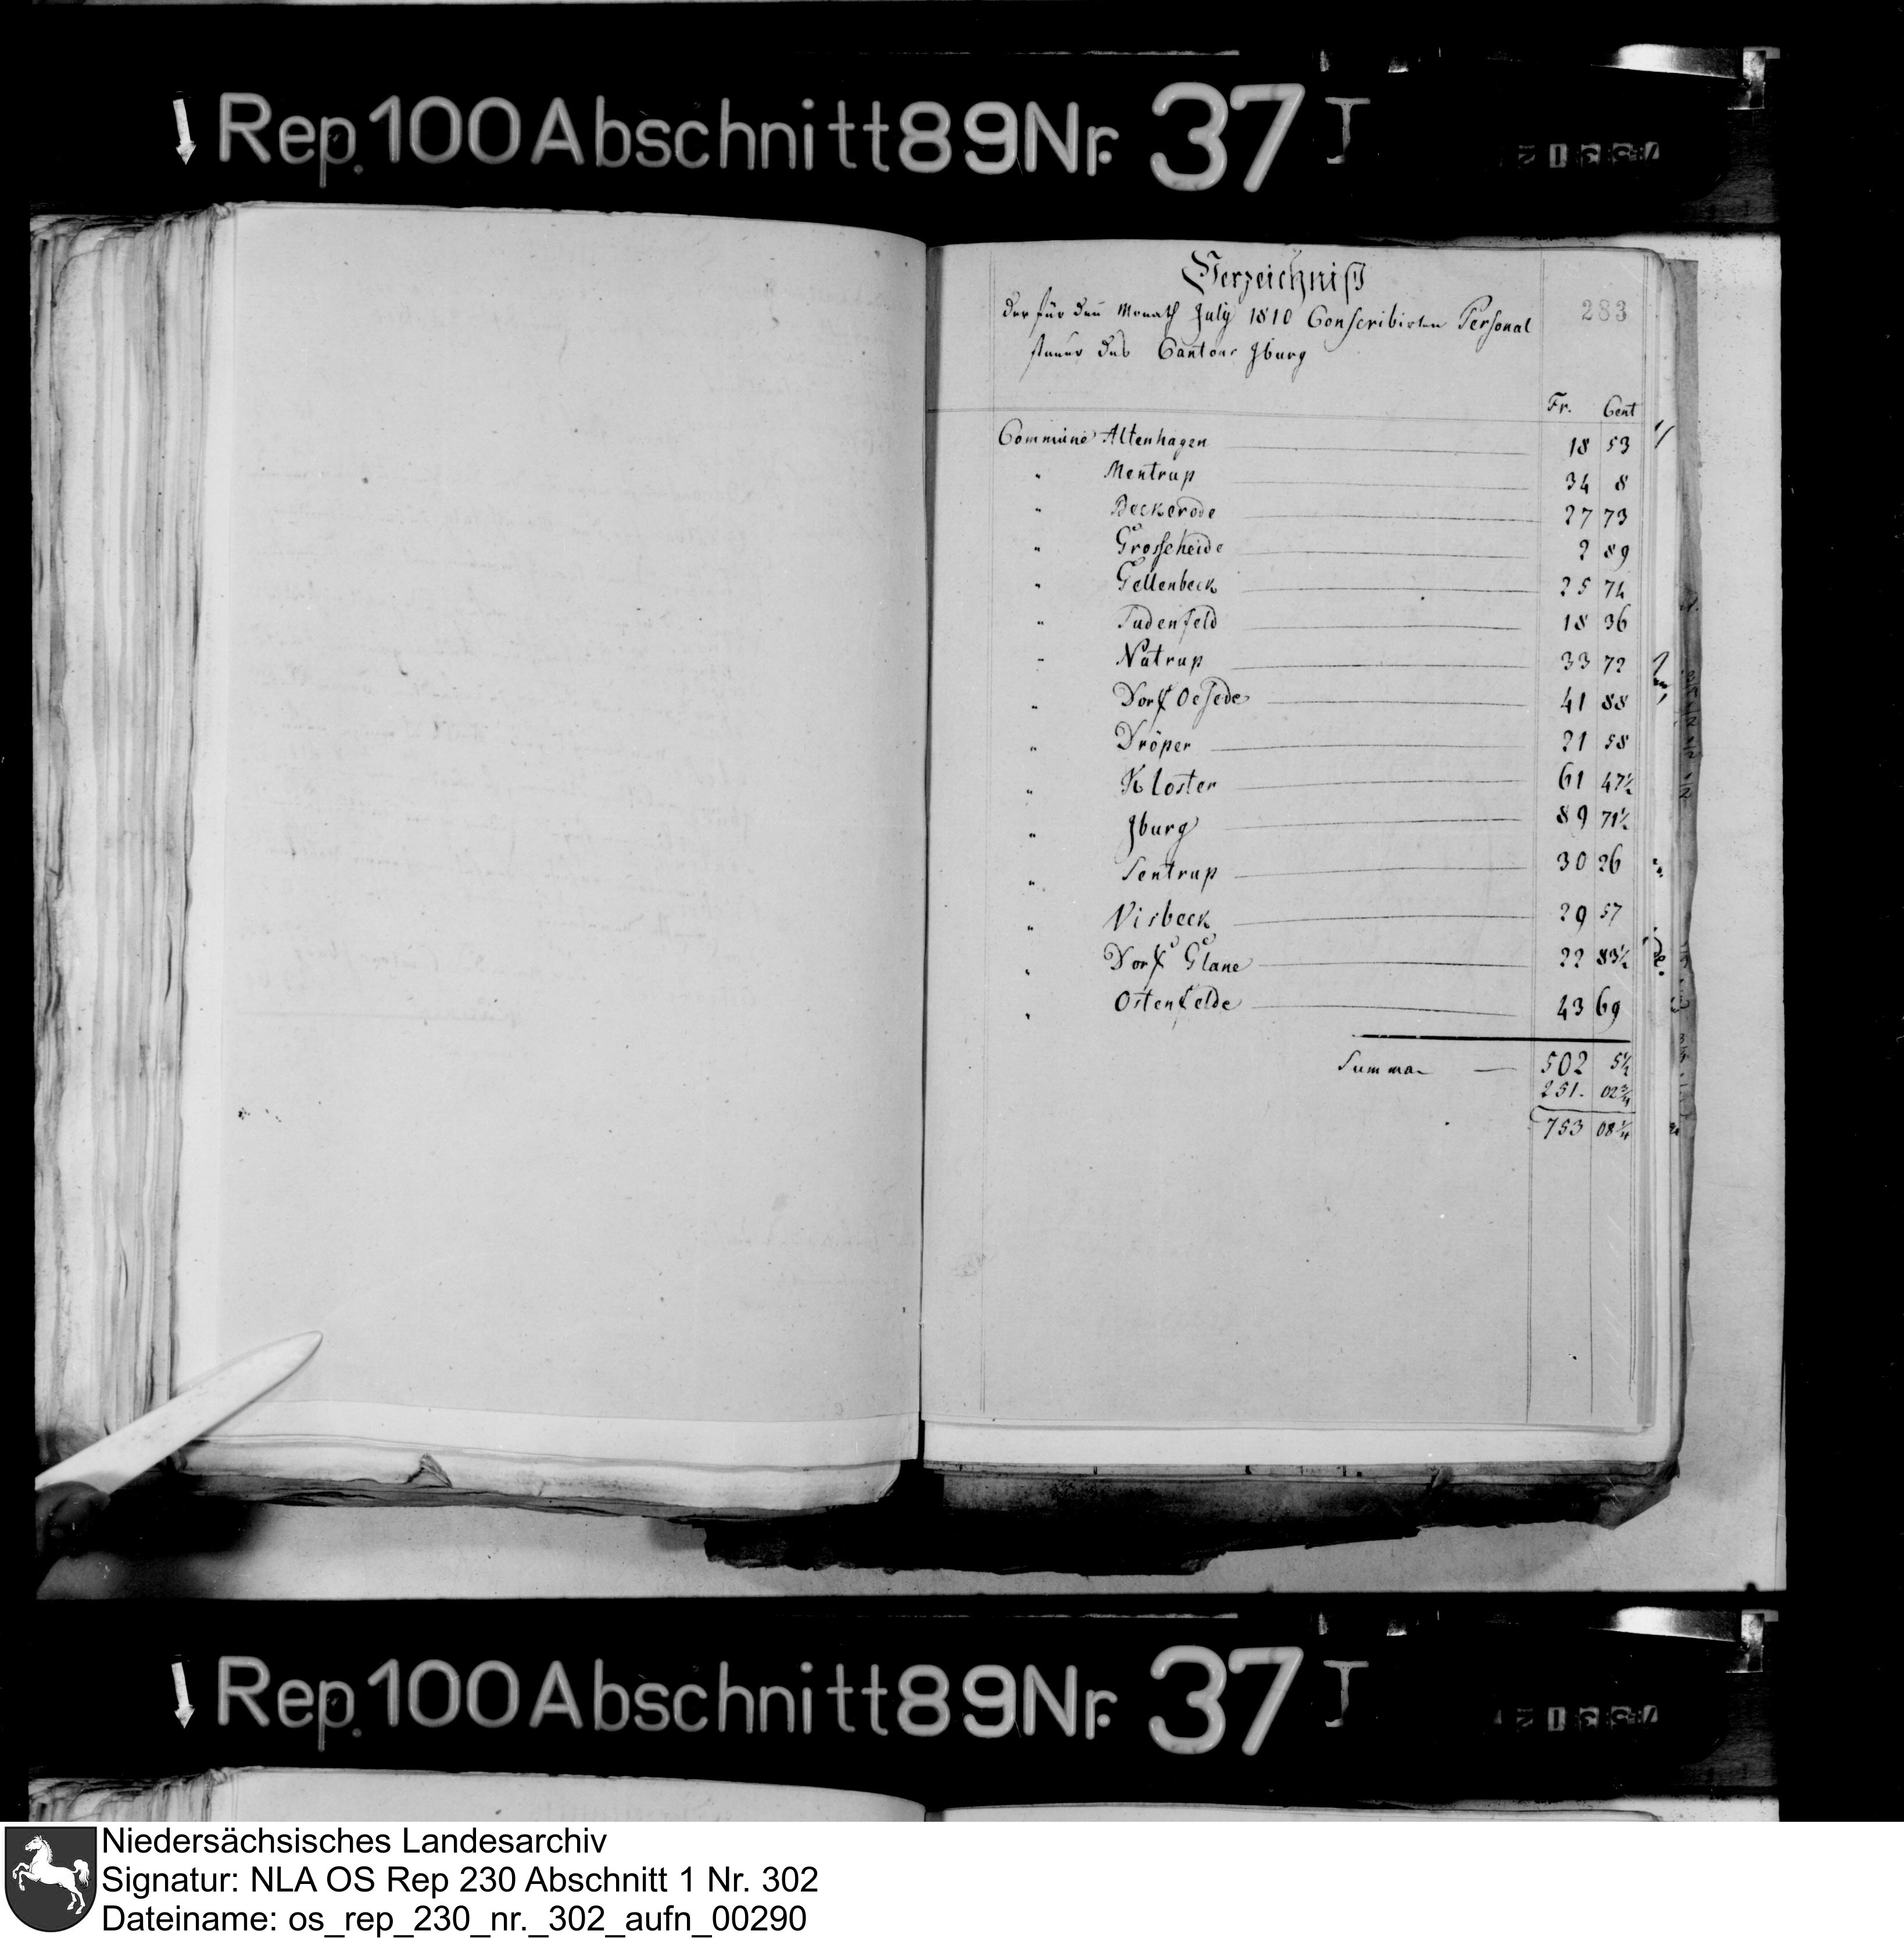 Rep. 100 Abschnitt 89 Nr. 37 I
Verzeichniß
283
der für den Monath July 1810 Conscribirten Personal
steuer des Cantons Jburg
Fr. Cent
Commune Altenhagen 18 53
" Mentrup 34 8
" Beckerode 27 73
" Grosscheide 2 89
" Gellenbeck 25 74
" Sudenfeld 18 36
" Natrup 33 72
" Dorf Oesede 41 88
" Dröper 21 58
" Kloster 61 47½
" Jburg 89 71½
" Sentrup 30 26
" Visbeck 29 57
" Dorf Glane 22 83½
" Ostenfelde 43 69
Summa 502 5½
251. 02¾
753 08¼
Rep. 100 Abschnitt 89 Nr. 37 I
Niedersächsisches Landesarchiv
Signatur: NLA OS Rep 230 Abschnitt 1 Nr. 302
Dateiname: os_rep_230_nr._302_aufn_00290